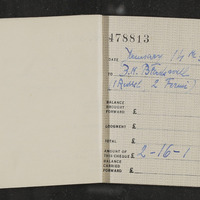 478813
DATE January 14th
TO B.H. Blackwell
(Russ. 2 Farm)
BALANCE
BROUGHT
FORWARD £
LODGMENT £
TOTAL £
AMOUNT OF
THIS CHEQUE £ 2-16-1
BALANCE
CARRIED
FORWARD £